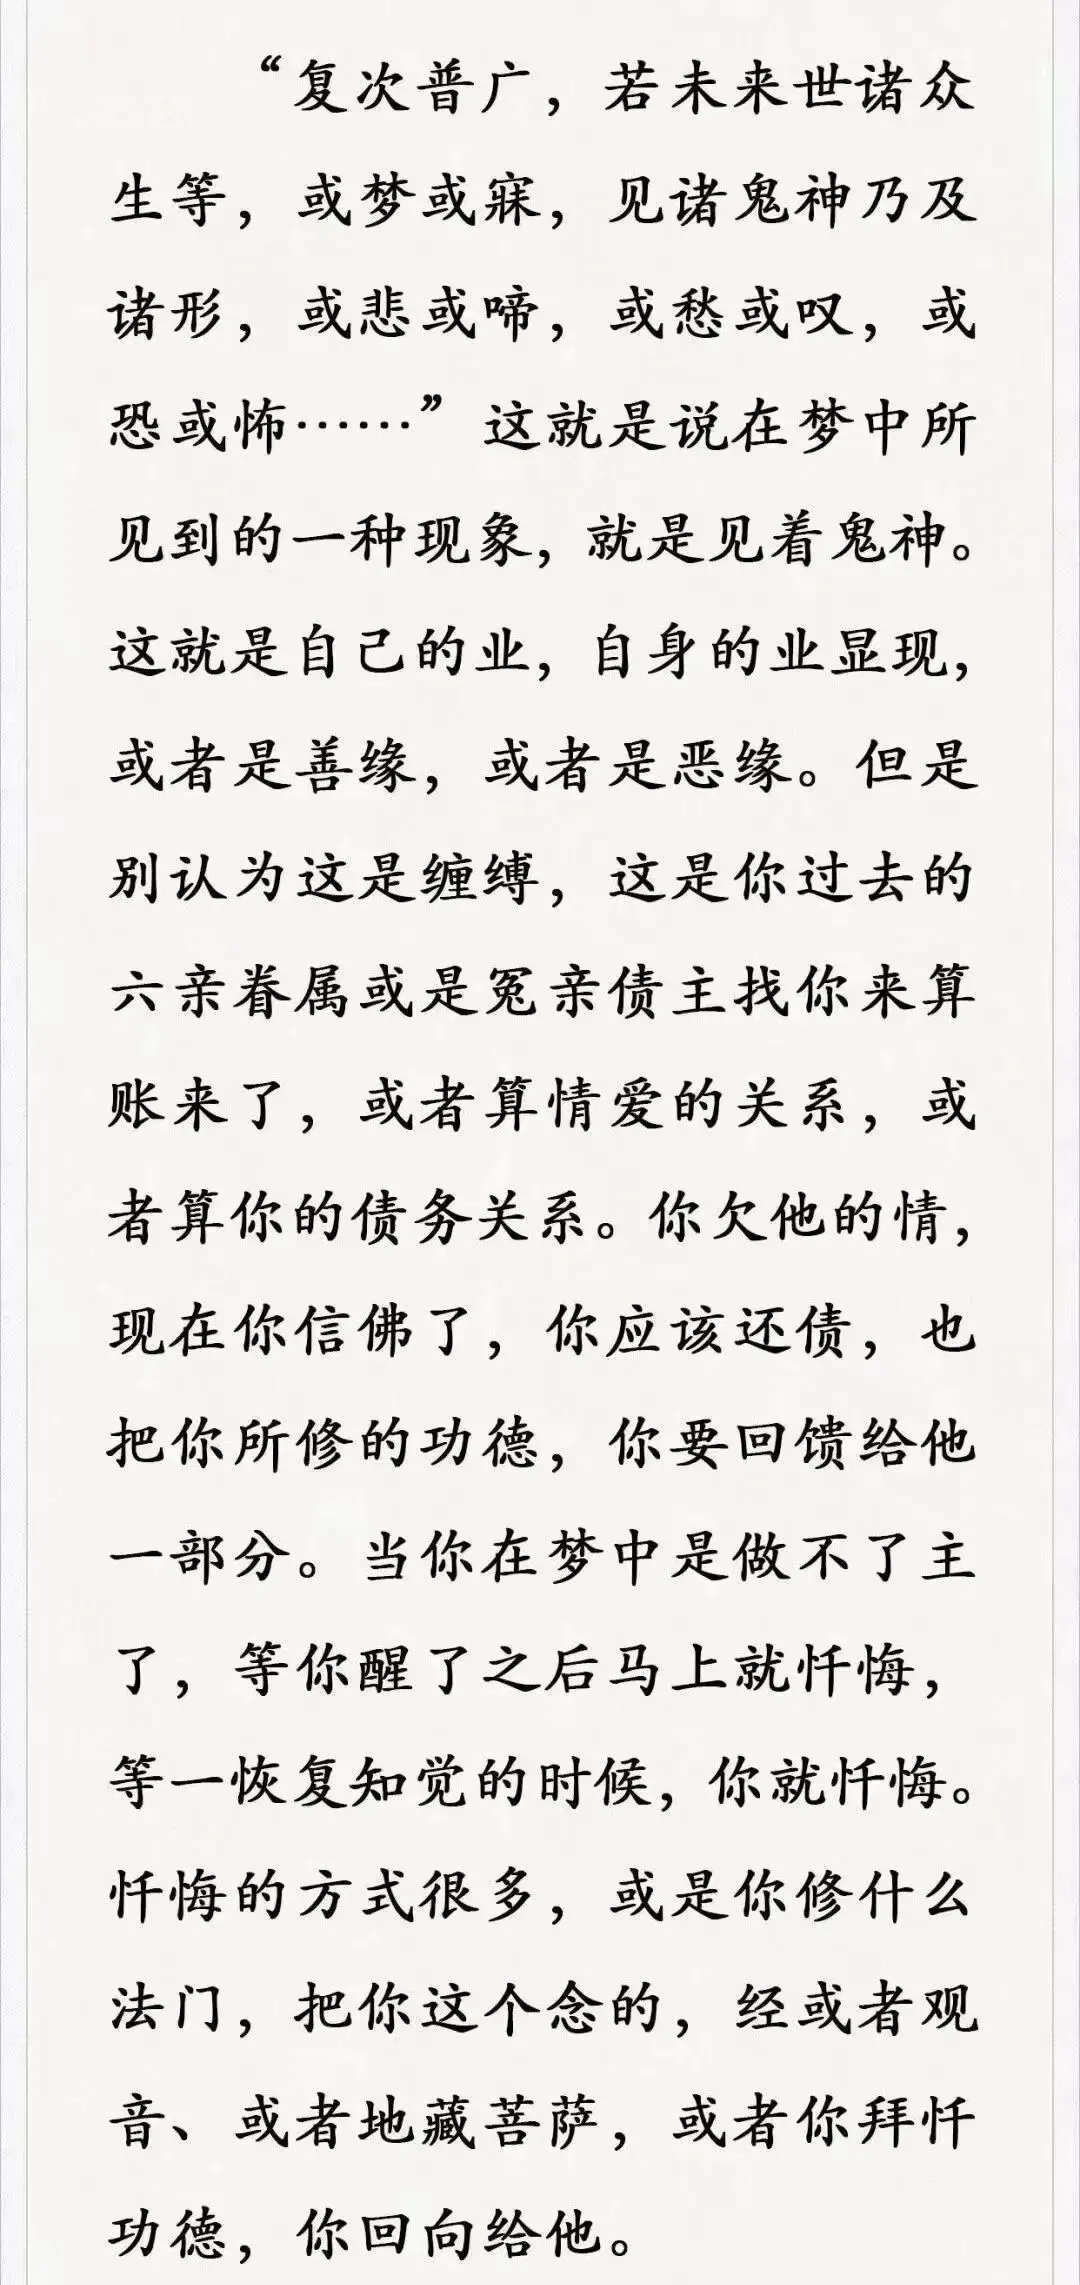 “复次普广，若未来世诸众
生等，或梦或寐，见诸鬼神乃及
诸形，或悲或啼，或愁或叹，或
恐或怖……”这就是说在梦中所
见到的一种现象，就是见着鬼神。
这就是自己的业，自身的业显现，
或者是善缘，或者是恶缘。但是
别认为这是缠缚，这是你过去的
六亲眷属或是冤亲债主找你来算
账来了，或者算情爱的关系，或
者算你的债务关系。你欠他的情，
现在你信佛了，你应该还债，也
把你所修的功德，你要回馈给他
一部分。当你在梦中是做不了主
了，等你醒了之后马上就忏悔，
等一恢复知觉的时候，你就忏悔。
忏悔的方式很多，或是你修什么
法门，把你这个念的，经或者观
音、或者地藏菩萨，或者你拜忏
功德，你回向给他。